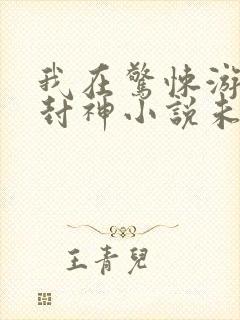 我在驚悚游
封神小說未
王青兒